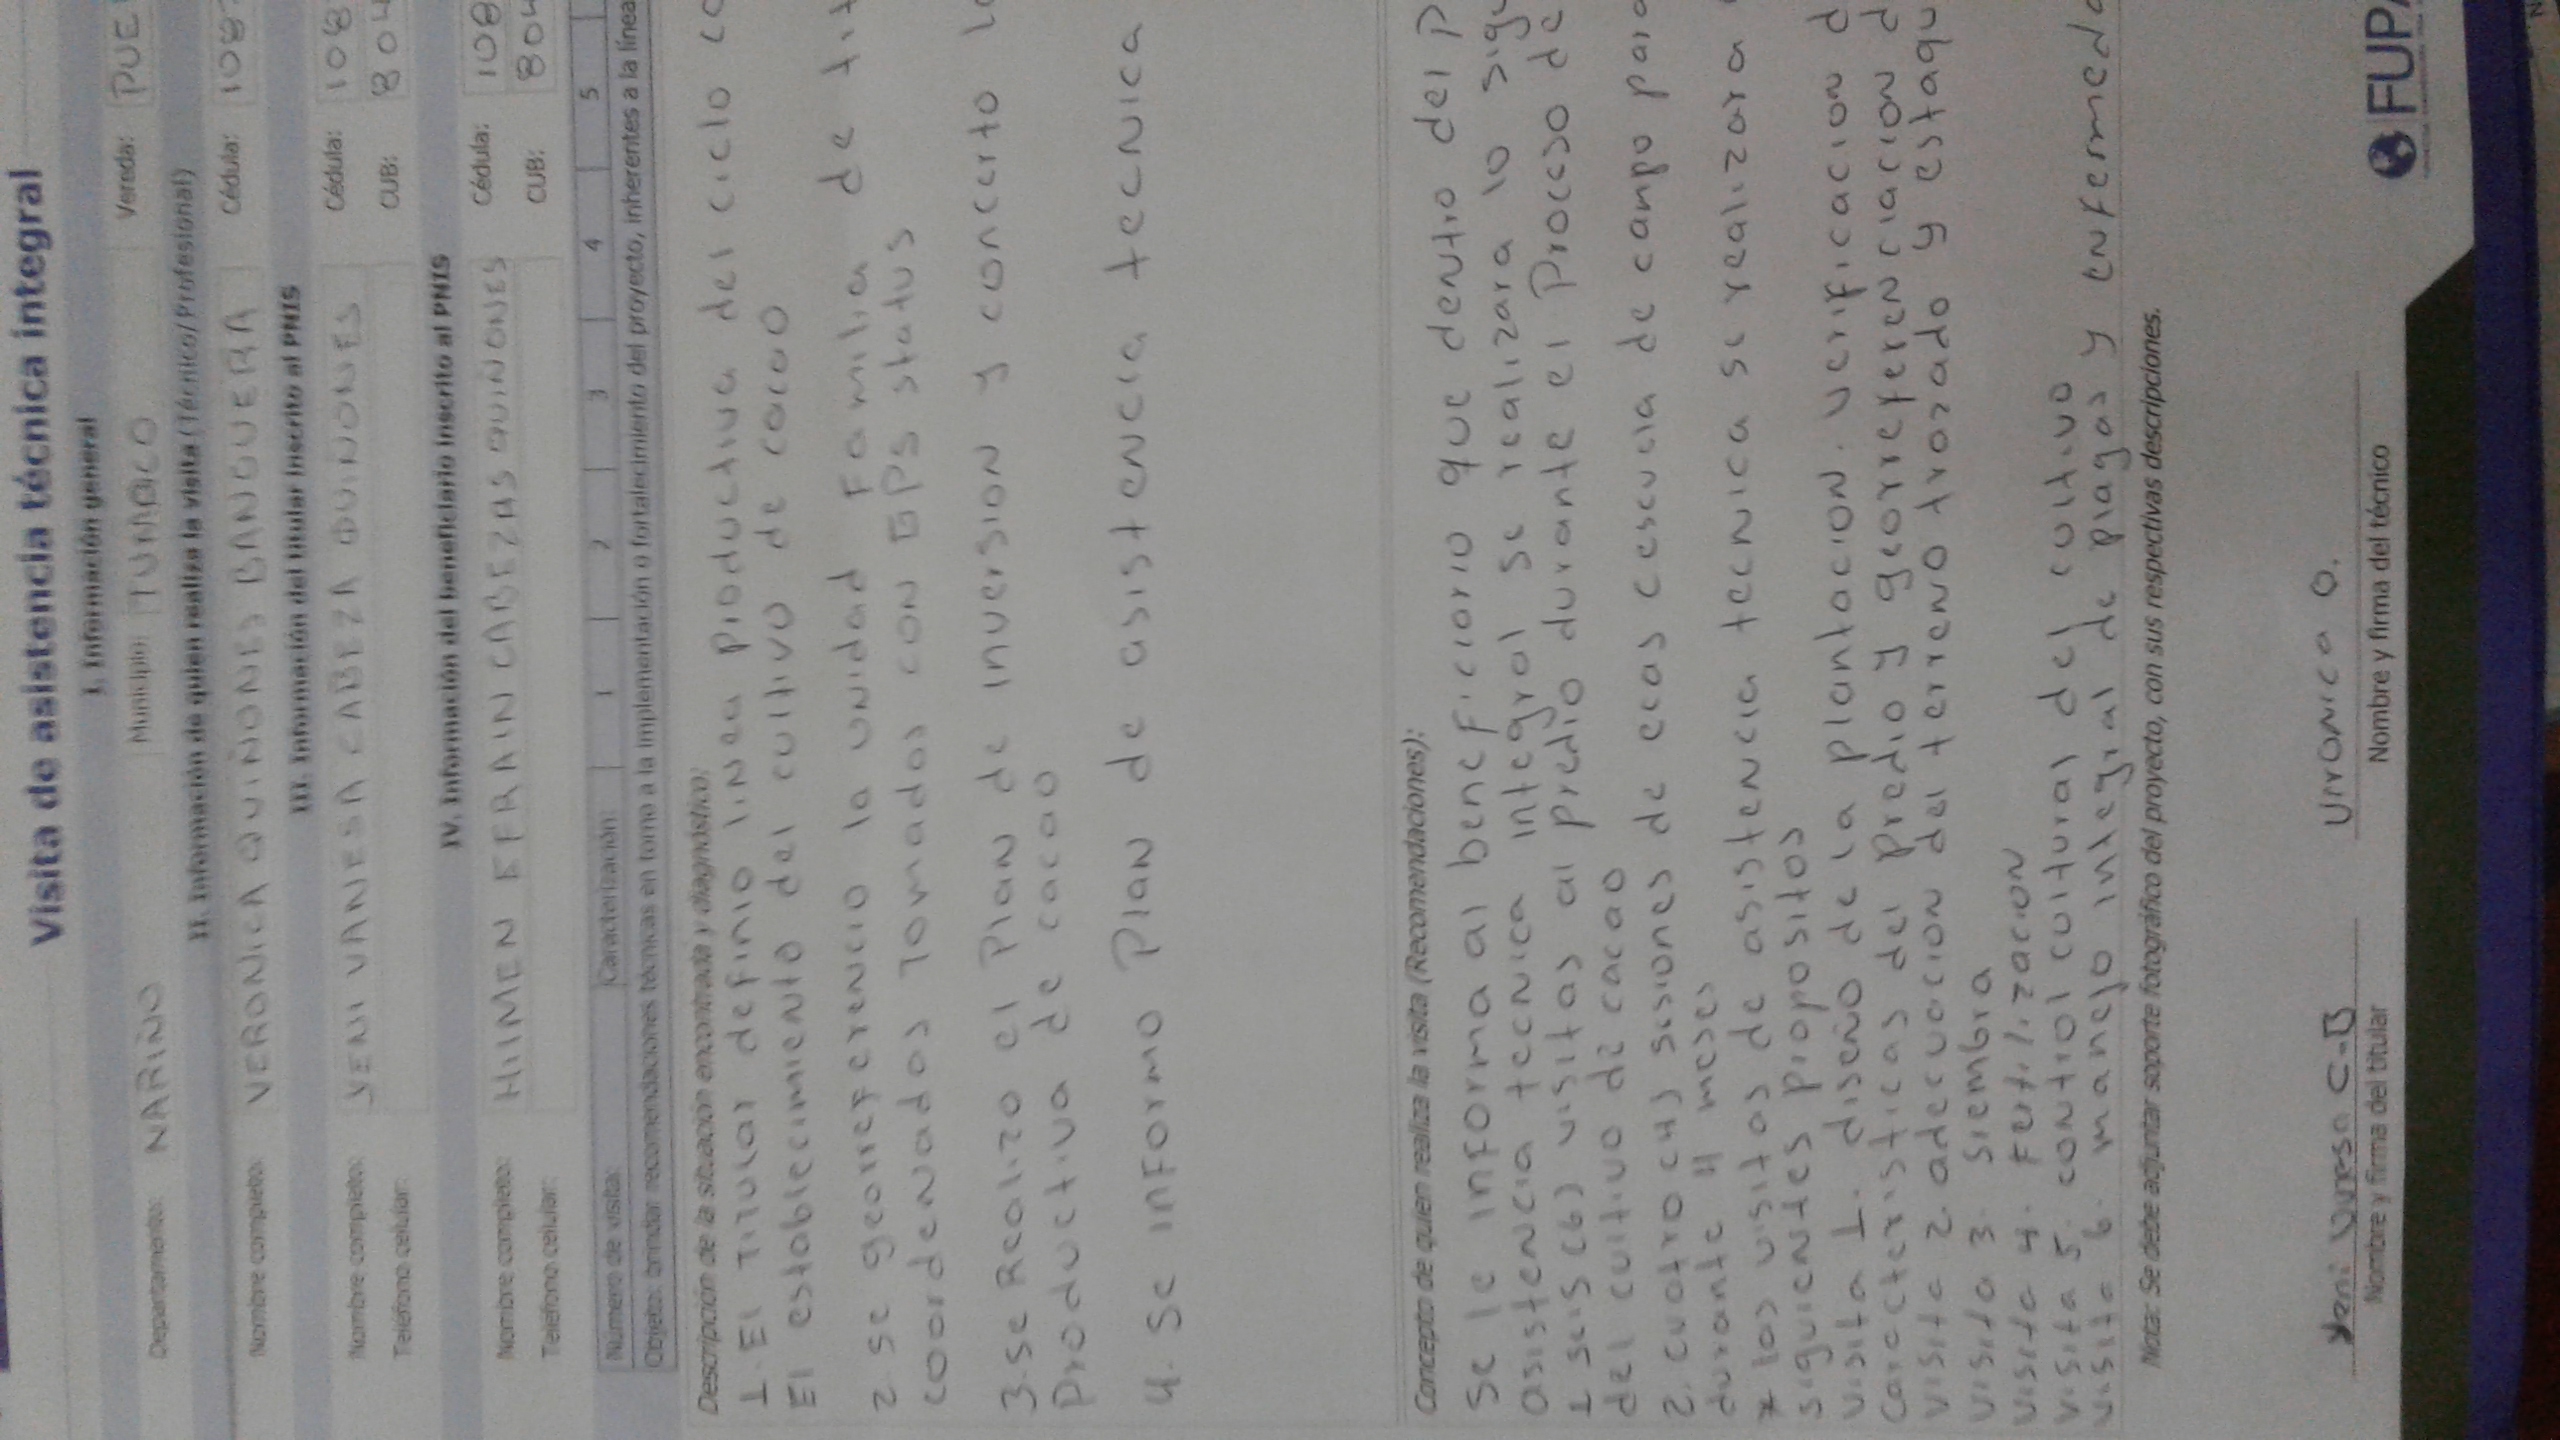 Visita de asistencia técnica integral
I. Información general
Departamento: NARIÑO Municipio: TUMACO Vereda: PUE
II. Información de quien realiza la visita (Técnico/Profesional)
Nombre completo: VERONICA QUIÑONES BANGUERA Cédula: 108
III. Información del titular inscrito al PNIS
Nombre completo: YENI VANESA CABEZA QUINONES Cédula: 108
Teléfono celular: CUB: 804
IV. Información del beneficiario inscrito al PNIS
Nombre completo: HIMEN EFRAIN CABEZAS QUINONES Cédula: 108
Teléfono celular: CUB: 804
Número de visita: Caracterización: 1 2 3 4 5
Objeto: brindar recomendaciones técnicas en torno a la implementación o fortalecimiento del proyecto, inherentes a la línea
Descripción de la situación encontrada y diagnóstico:
1. El Titular definio linea productiva del ciclo co
El establecimiento del cultivo de cacao
2 se georreferencio la unidad Familia de tit
coordenadas Tomadas con GPS status
3. se Realizo el Plan de inversion y concerto la
Productiva de cacao
4. se informo Plan de asistencia tecnica
Concepto de quien realiza la visita (Recomendaciones):
Se le informa al beneficiario que dentro del P
asistencia tecnica integral se realizara lo sigu
1 seis (6) visitas al predio durante el Proceso de
del cultivo de cacao
2. cuatro (4) sesiones de ecas (escuela de campo para
durante 4 meses
* las visitas de asistencia tecnica se realizara
siguientes propositos
visita 1. diseño de la plantacion. verificacion d
caracteristicas del predio y georreferenciacion d
visita 2 adecuacion del terreno trozado y estaqu
visita 3. siembra
visita 4. Fertilizacion
visita 5. control cultural del cultivo
visita 6. manejo integral de plagas y enfermeda
Nota: Se debe adjuntar soporte fotográfico del proyecto, con sus respectivas descripciones.
Yeni Vanesa C.B Veronica Q.
Nombre y firma del titular Nombre y firma del técnico
FUPA